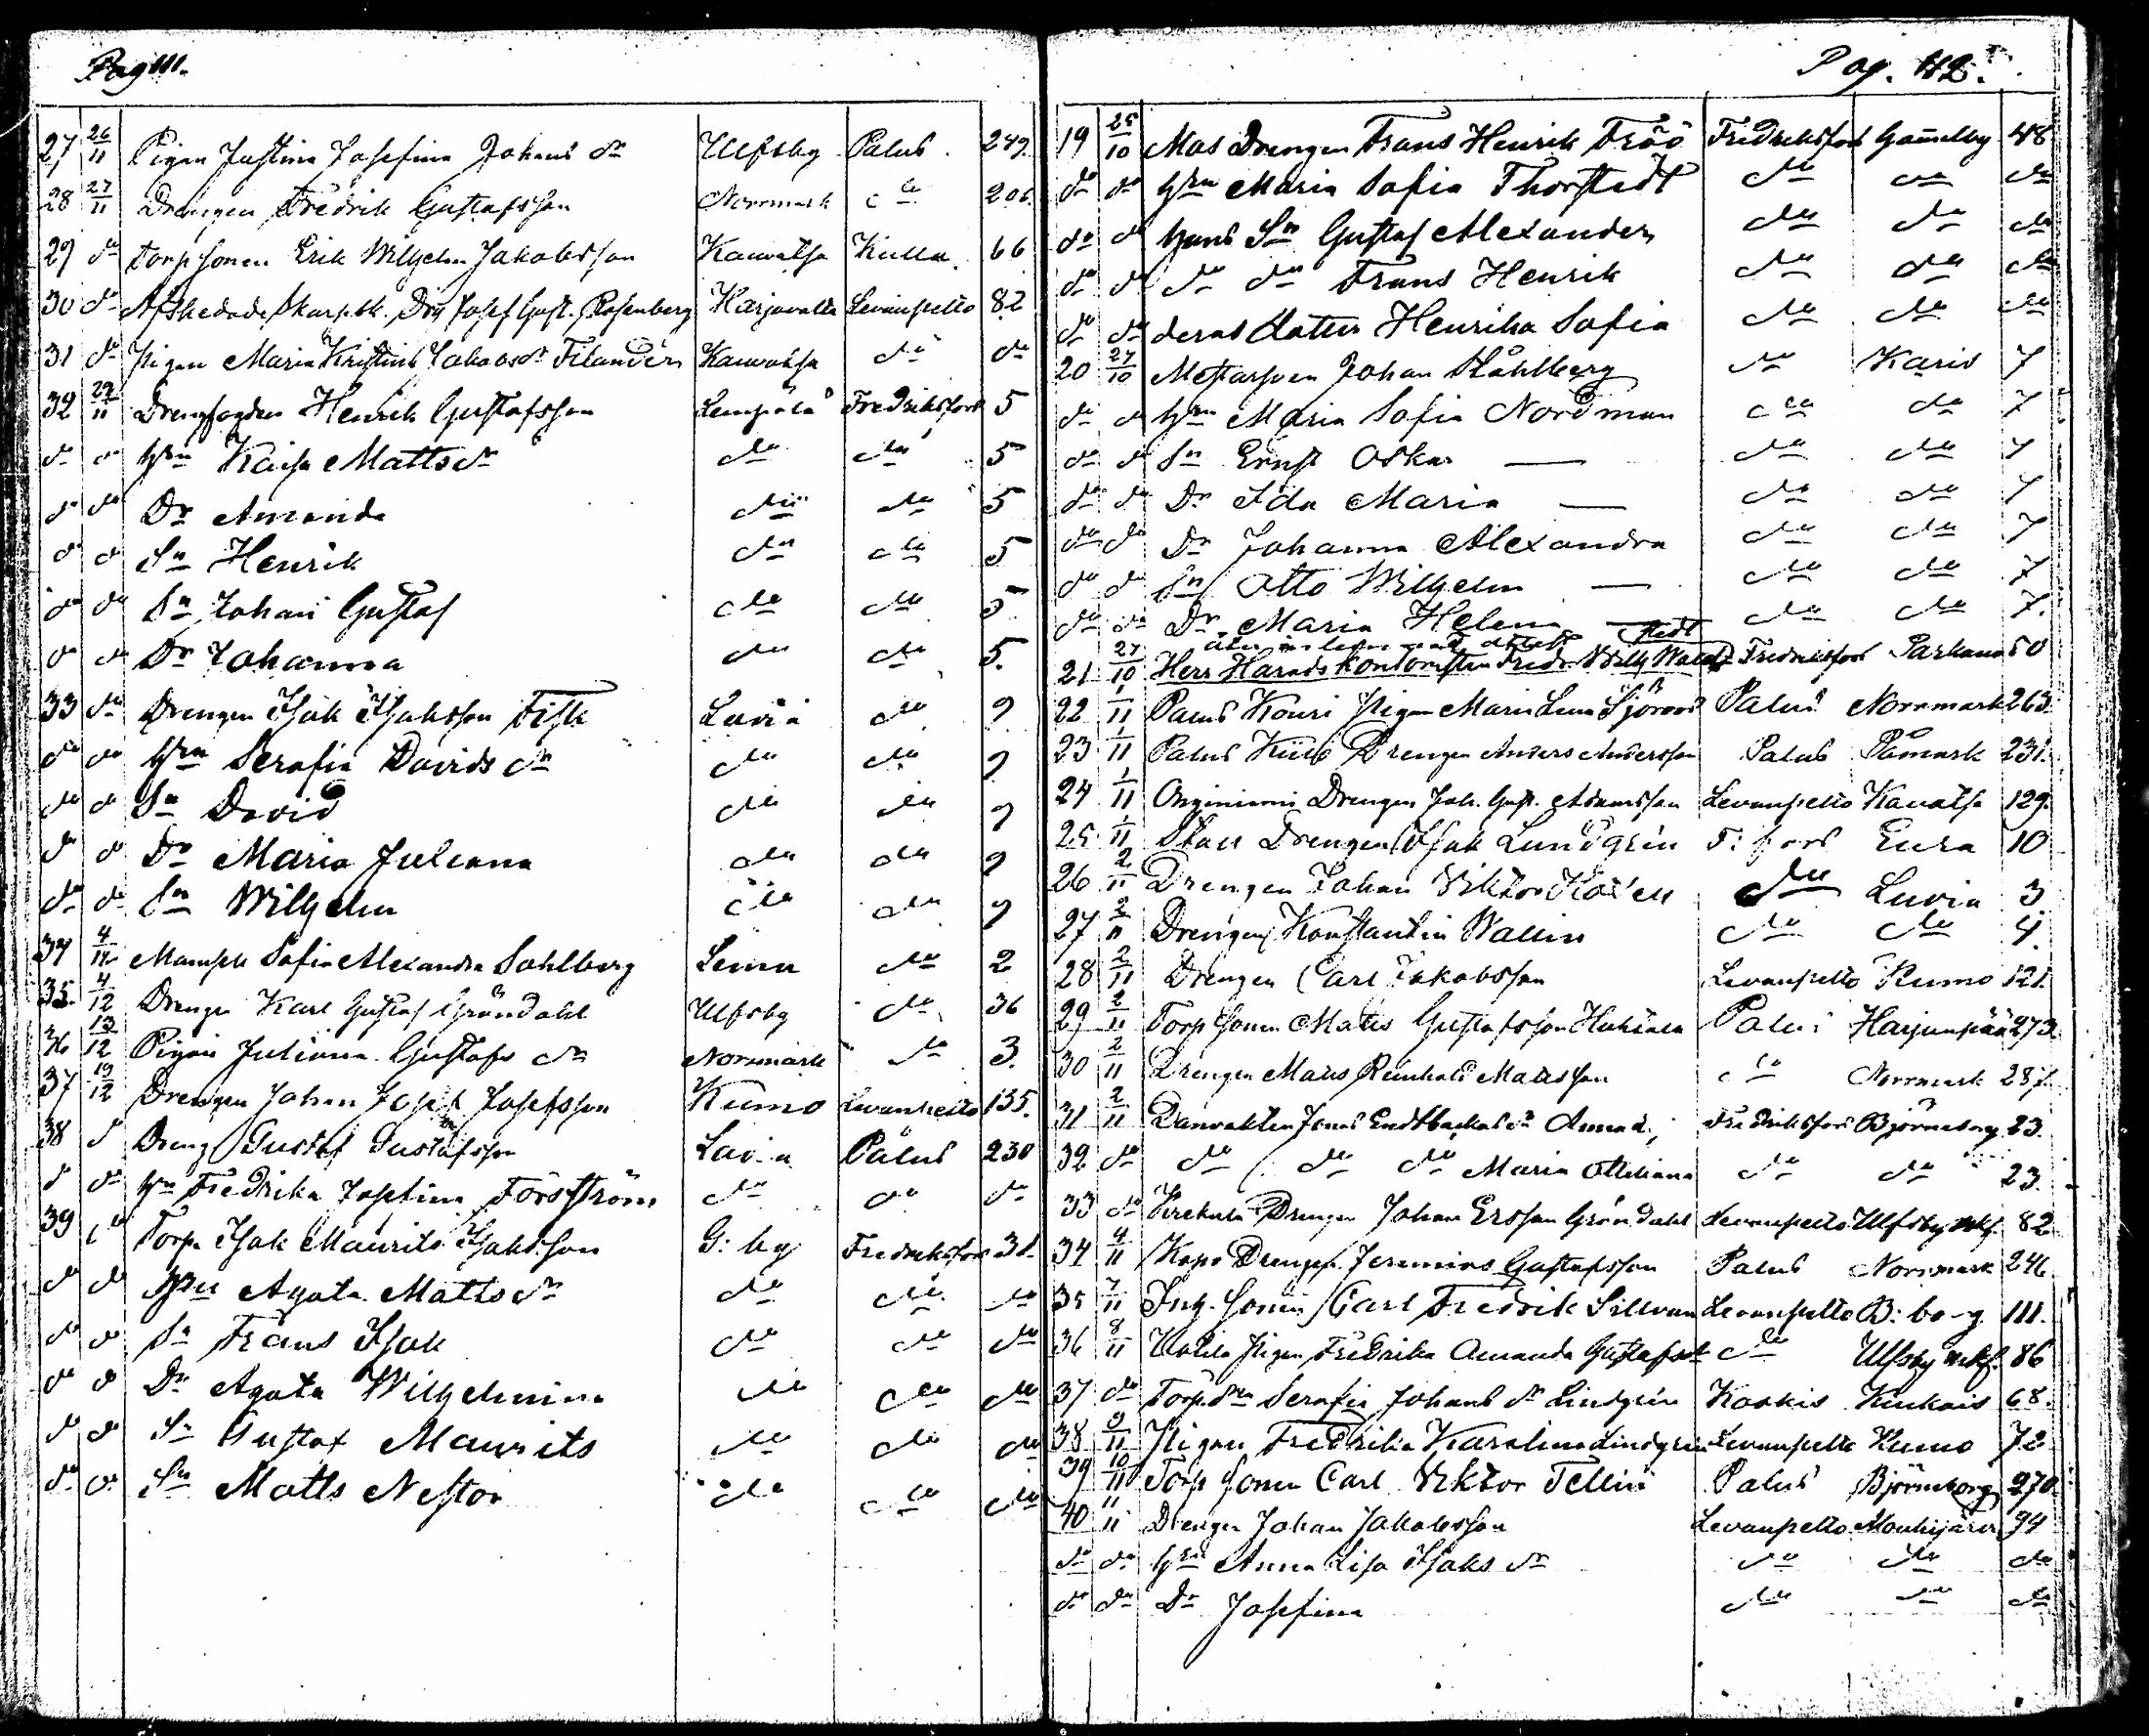 Pag 111.
27 26/11 Pigan Justina Josefina Johans dr Ulfsby Palus 249.
28 27/11 Drengen Fredrik Gustafsson Norrmark do 206
29 do Torpsonen Erik Wilhelm Jakobsson Kauvatsa Kulla 66
30 do Afskedade Skarpsk. Drg Josef Gust. Rosenberg Harjavalta Levanpelto 82
31 do Pigan Maria Kristina Jakobsdr Filander Kauvatsa do do
32 29/11 Drengfogden Henrik Gustafsson Lempälä Fredriksfors 5
do do Hru Kaisa Mattsdr do do 5
do do Dr Amanda do do 5
do do Sn Henrik do do 5
do do Sn Johan Gustaf do do 5
do do Dr Johanna do do 5.
33 do Drengen Isak Isaksson Fisk Lavia do 9
do do Hru Serafia Davidsdr do do 9
do do Sn David do do 9
do do Dr Maria Juliana do do 9
do do Sn Wilhelm do do 9
34 4/12 Mamsell Sofia Alexandra Sahlberg Lemu do 2
35. 4/12 Drengen Karl Gustaf Gröndahl Ulfsby do 36
36 13/12 Pigan Juliana Gustafs dr Norrmark do 3.
37 19/12 Drengen Johan Josef Josefsson Kumo Levanpelto 135.
38 do Dreng Gustaf Gustafsson Lavia Palus 230
do do Hu Fredrika Josefina Forsström do do do
39 do Torp. Isak Maurits Isaksson G: by Fredriksfors 38
do do Hru Agata Mattsdr do do do
do do Sn Frans Isak do do do
do do Dr Agata Wilhelmina do do do
do do Sn Gustaf Maurits do do do
do do Sn Matts Nestor do do do
Pag. 112.
19 25/10 Mas Drengen Frans Henrik Fröö Fredriksfors Gamelby 48
do do Hru Maria Sofia Thorstedt do do do
do do Hans Sn Gustaf Alexander do do do
do do do do Frans Henrik do do do
do do deras dotter Henrika Sofia do do do
20 27/10 Mästarsven Johan Ståhlberg do Karis 7
do do Hru Maria Sofia Nordman do do 7
do do Sn Ernst Oskar — do do 7
do do Dr Ida Maria — do do 7
do do Dr Johanna Alexandra do do 7
do do Sn Otto Wilhelm — do do 7
do do Dr Maria Helena — do do 7.
21 27/10 Herr Härads Kontoristen Fredr. Wilh. Wald stedt Fredriksfors Parkano 50
22 1/11 Palus Kouri Pigan Maria Lena Sjöroos Palus Norrmark 263
23 1/11 Palus Drengen Anders Andersson Palus Påmark 231.
24 1/11 Drengen Joh. Gust. Adamsson Levanpelto Kauvatsa 129.
25 1/11 Drengen Isak Lundgrén F: fors Eura 10
26 2/11 Drengen Johan Viktor do Luvia 3
27 2/11 Drengen Konstantin Wallin do do 4
28 2/11 Drengen Carl Jakobsson Levanpelto Kumo 121.
29 2/11 Torpsonen Matts Gustafsson Palus Harjunpää 273
30 2/11 Drengen Matts Reinhold Mattsson do Norrmark 287.
31 2/11 Jonas Amanda Fredriksfors Björneborg 23.
32 do do do do Maria Ottiliana do do 23.
33 do Drengen Johan Ersson Gröndahl Levanpelto Ulfsby mkf. 82
34 4/11 Drengen Jeremias Gustafsson Palus Norrmark 246
35 7/11 Inh. Sonen Carl Fredrik Sillman Levanpelto B: borg 111.
36 8/11 Pigan Fredrika Amanda Gustafsdr do Ulfsby mkf. 86
37 do Torp. dn Serafia Johans dr Lindgrén Koskis Kiukais 68.
38 9/11 Pigan Fredrika Karolina Lindgrén Levanpelto Kumo 72
39 10/11 Torpsonen Carl Viktor Tellin Palus Björneborg 270.
40 11/11 Drengen Johan Jakobsson Levanpelto Mouhijärvi 94
do do Hru Anna Lisa Isaks dr do do do
do do Dr Josefina do do do